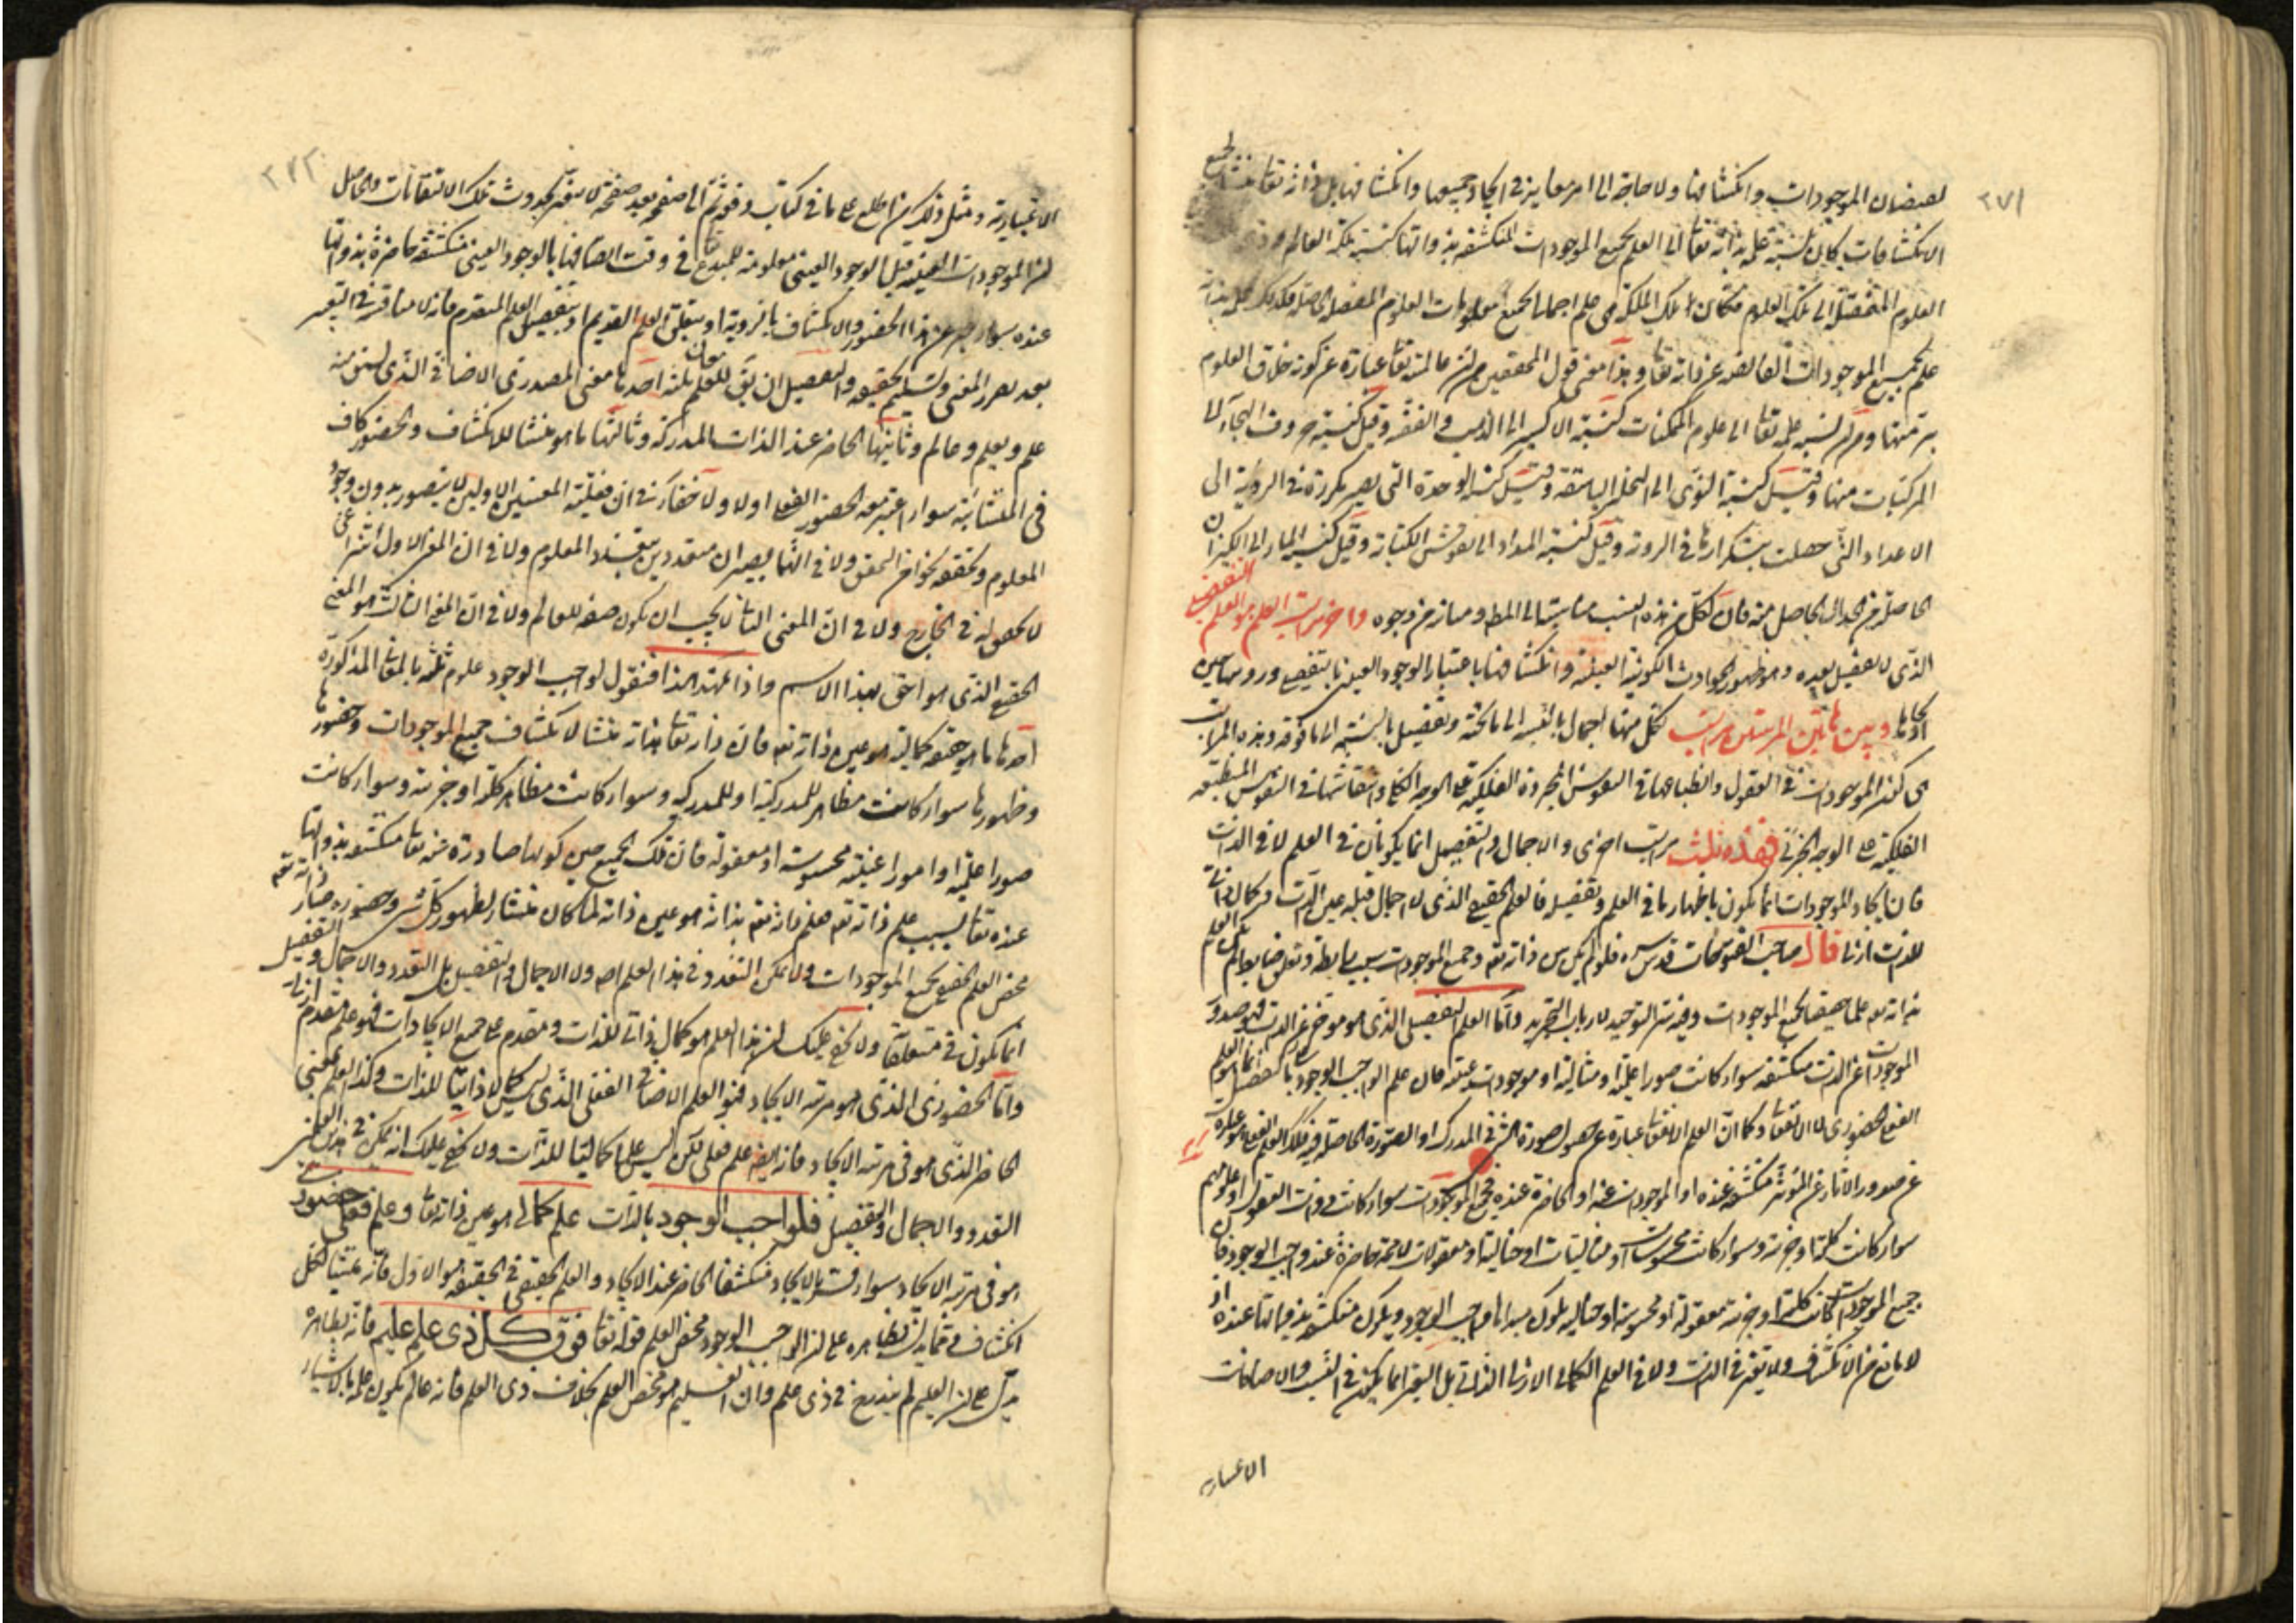 ٢٧١
لفيضان الموجودات وانكشافها ولا حاجة الى امر مغاير في ايجاد جميعها وانكشافها بل ذاته تعا منشا لجميع
الانكشافات كان نسبة علمه بذاته تعا الى العلم بجميع الموجودات المنكشفة بذواتها كنسبة ملكة العالم
العلوم المفصلة الى تلك العلوم فكما ان تلك الملكة هي علم اجمالي بجميع معلومات العلوم المفصلة فكذلك علمه بذاته
علم بجميع الموجودات الفائضة عن ذاته تعا وهذا معنى قول المحققين من ان عالمية تعا عبارة عن كونه خلاق العلوم
نسبة علمه تعا الى علوم الممكنات كنسبة الاكسير الى الذهب والفضة وقيل كنسبة حروف الهجاء الى
المركبات منها وقيل كنسبة النوى الى النخلة الباسقة وقيل كنسبة الوحدة التي يصير مكررة في الرؤية الى
الاعداد التي حصلت بتكرارها في الرؤية وقيل كنسبة المداد الى نقوش الكتابة وقيل كنسبة الماء الى الكيزان
الحاصلة من الجدال الحاصل منه فان لكل من هذه النسب مناسبة الى المط ومبازم وجوه واخر مراتب العلم هو العلم التفصيلي
الذي لا تفصيل بعده وهو ظهور الحوادث الكونية العينية وانكشافها باعتبار الوجود العيني
ايجادها وبين هاتين المرتبتين مراتب لكل منها اجمال بالنسبة الى ما تحته وتفصيل بالنسبة الى ما فوقه وهذه المراتب
الموجودات في العقول وانطباعها في النفوس المجردة الفلكية على الوجه الكلي وانتقاشها في النفوس المنطبعة
الفلكية على الوجه الجزئي فهذه ثلث مراتب اخرى والاجمال والتفصيل انما يكونان في العلم لا في الذات
فان ايجاد الموجودات انما يكون باظهار ما في العلم وتفصيله فالعلم الحقيقي الذي لا اجمال قبله عين الذات وكمال ذاتي
للذات ازلا قال صاحب الفتوحات قدس سره فلو لم يكن بين ذاته تعا وجميع الموجودات
بذاته تعا علما حقيقيا بجميع الموجودات وفيه سر التوحيد لارباب التجريد واما العلم التفصيلي الذي هو مؤخر عن الذات فهو صدور
الموجودات عن الذات منكشفة سواء كانت صورا علمية او مثالية او موجودات عينية فان علم الواجب الوجود بالتفصيل
الفعلي الحضوري لا الانفعالي وكما ان العلم الانفعالي عبارة عن حصول صورة الشيء في المدرك او الصورة الحاصلة فيه فكذلك العلم الفعلي هو عبارة
عن صدور الاثار عن المؤثر منكشفة عنده او الموجودات عنه او الحاضرة عنده فجميع الموجودات سواء كانت ذوات العقول او علومهم
سواء كانت كلية او جزئية وسواء كانت محسوسات او مثاليات او خيالية او معقولات لامحة حاضرة عند واجب الوجود فان
جميع الموجودات كانت كلية او جزئية معقولة او محسوسة او خيالية يكون مبداها واجب الوجود ويكون منكشفة بذواتها عنده اذ
لا مانع من الانكشاف ولا تغير في الذات ولا في العلم الكمالي الازلي الذاتي بل التغير انما يكون في النسب والاضافات
الاعتبارية
٢٧٢
الاعتبارية ومثل ذلك من اطلع على ما في كتاب دفعة ثم الى صفحة بعد صفحة لا يتغير بحدوث تلك الالتفاتات والحاصل
ان الموجودات العينية قبل الوجود العيني معلومة للمبدع تعا في وقت اتصافها بالوجود العيني منكشفة حاضرة بذواتها
عنده سواء عبر عن هذا الحضور والانكشاف بالرؤية او بتعلق العلم القديم او بتفصيل العلم المتقدم فانه لا مناقشة في التعبير
بعد تقرر المعنى وتسليم الحقيقة والتفصيل ان يق للعلم معان ثلثة احدها معنى المصدري الاضافي الذي يشتق منه
علم ويعلم وعالم وثانيها الحاضر عند الذات المدركة وثالثها ما هو منشا للانكشاف والحضور كاف
في المنشائية سواء اعتبر معه الحضور الفعلي اولا ولا خفاء في ان فعلية المعنيين الاولين لا يتصور بدون وجود
المعلوم وتحققه بنحو من التحقق ولا في انهما يصيران متعددين بتعدد المعلوم ولا في ان المعنى الاول انتزاعي
لا تحصل له في الخارج ولا في ان المعنى الثاني لا يجب ان يكون صفة للعالم ولا في ان المعنى الثالث هو المعنى
الحقيقي الذي هو احق بهذا الاسم واذا تمهد هذا فنقول لواجب الوجود علوم ثلثة بالمعاني المذكورة
احدها ما هو صفة كمالية هو عين ذاته تعا فان ذاته تعا بذاته منشا لانكشاف جميع الموجودات وحضورها
وظهورها سواء كانت مظاهر للمدركية او للمدركية وسواء كانت مظاهر كلية او جزئية وسواء كانت
صورا علمية او امورا عينية محسوسة او معقولة فان تلك الجميع حين كونها صادرة عنه تعا منكشفة بذواتها
عنده تعا بسبب علم ذاته تعا فعلمه تعا بذاته هو عين ذاته لما كان منشا لظهور كل شيء وحضوره فذاته تعا
محض العلم الحقيقي بجميع الموجودات ولا يمكن التعدد في هذا العلم اصلا ولا الاجمال والتفصيل بل التعدد والاجمال والتفصيل
انما يكون في متعلقاته ولا يخفى عليك ان هذا العلم هو كمال ذاتي للذات ومقدم على جميع الايجادات فهو علم متقدم ازلي
واما الحضوري الذي هو مرتبة الايجاد فهو العلم الاضافي الفعلي الذي ليس كمالا ذاتيا للذات وكذا العلم بمعنى
الحاضر الذي هو في مرتبة الايجاد فانه ايضا علم فعلي لكن ليس علما كماليا للذات ولا يخفى عليك انه يمكن في هذين العلمين
التعدد والاجمال والتفصيل فلواجب الوجود بالذات علم كمالي هو عين ذاته تعا وعلم فعلي حضوري
هو في مرتبة الايجاد سواء فسر بالايجاد منكشفا الحاضر عند الايجاد والعلم الحقيقي في الحقيقة هو الاول فانه منشا لكل
انكشاف ظاهره على ان الواجب الوجود محض العلم قوله تعا فوق كل ذي علم عليم فانه بظاهره
يدل على ان العليم لم يندرج في ذي علم وان العليم هو محض العلم بخلاف ذي العلم فانه عالم يكون علمه بالاشياء